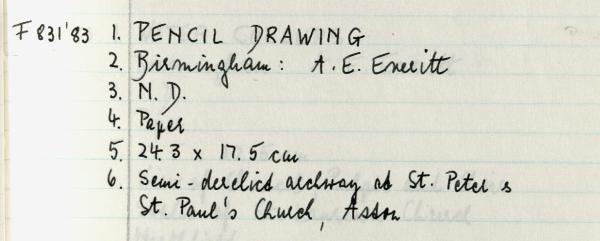 F831'83 1. PENCIL DRAWING
2. Birmingham: A. E. Everitt
3. N. D.
4. Paper
5. 24.3 x 17.5 cm
6. Semi-derelict archway at St. Peter &
St. Paul's Church, Aston